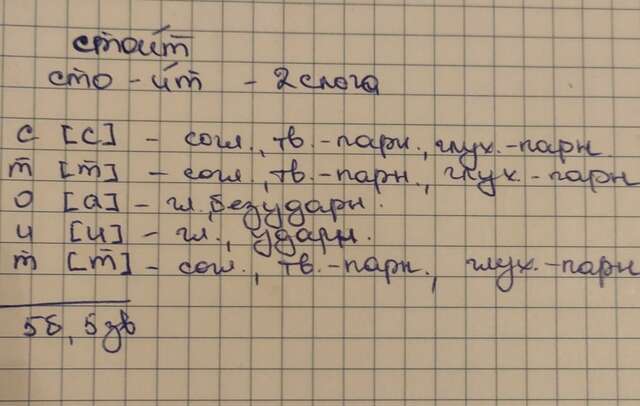 стои́т
сто - и́т - 2 слога
с [с] - согл., тв.-парн., глух.-парн
т [т] - согл., тв.-парн., глух.-парн
о [а] - гл. безударн.
и [и] - гл., ударн.
т [т] - согл., тв.-парн., глух.-парн
5б, 5зв